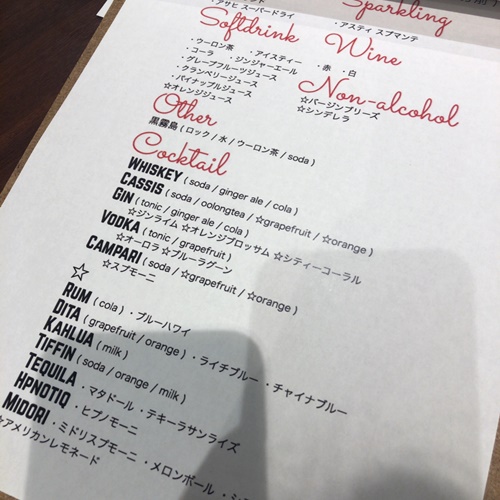 ・アサヒ スーパードライ
Sparkling
・アスティ スプマンテ
Softdrink
・ウーロン茶 ・アイスティー
・コーラ ・ジンジャーエール
・グレープフルーツジュース
・クランベリージュース
・パイナップルジュース
☆オレンジジュース
Wine
・赤 ・白
Non-alcohol
☆バージンブリーズ
☆シンデレラ
Other
黒霧島 ( ロック / 水 / ウーロン茶 / soda )
Cocktail
WHISKEY ( soda / ginger ale / cola )
CASSIS ( soda / oolongtea / ☆grapefruit / ☆orange )
GIN ( tonic / ginger ale / cola )
☆ジンライム ☆オレンジブロッサム ☆シティーコーラル
VODKA ( tonic / grapefruit )
☆オーロラ ☆ブルーラグーン
CAMPARI ( soda / ☆grapefruit / ☆orange )
☆スプモーニ
☆
RUM ( cola ) ・ブルーハワイ
DITA ( grapefruit / orange ) ・ライチブルー ・チャイナブルー
KAHLUA ( milk )
TIFFIN ( soda / orange / milk )
TEQUILA ・マタドール ・テキーラサンライズ
HPNOTIQ ・ヒプノモーニ
MIDORI ・ミドリスプモーニ ・メロンボール
☆アメリカンレモネード